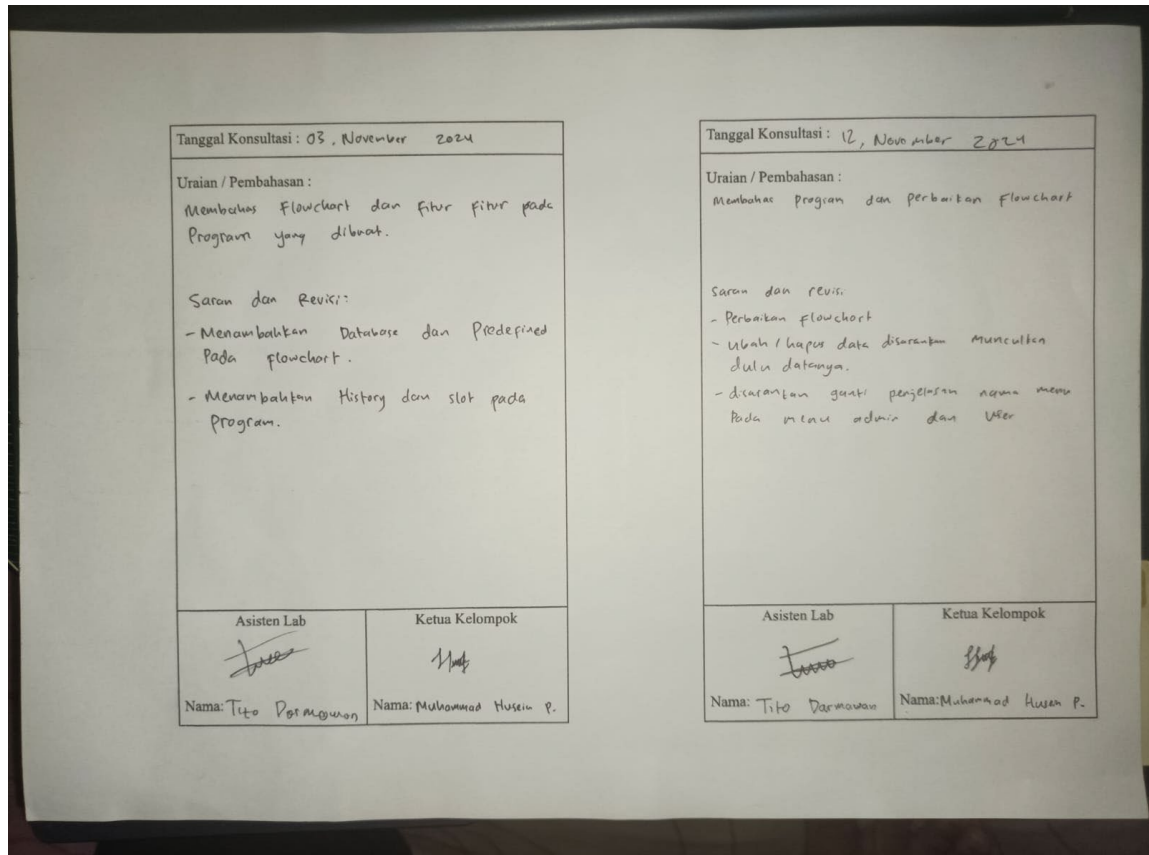 Tanggal Konsultasi : 03, November 2024
Uraian / Pembahasan :
Membahas Flowchart dan Fitur Fitur pada
Program yang dibuat.
Saran dan Revisi:
- Menambahkan Database dan Predefined
Pada flowchart.
- Menambahkan History dan slot pada
Program.
Asisten Lab
Ketua Kelompok
Nama: Tito Darmawan
Nama: Muhammad Husein P.
Tanggal Konsultasi : 12, November 2024
Uraian / Pembahasan :
Membahas Program dan Perbaikan Flowchart
Saran dan revisi
- Perbaikan flowchart
- Ubah / hapus data disarankan munculkan
dulu datanya.
- disarankan ganti penjelasan nama menu
Pada menu admin dan User
Asisten Lab
Ketua Kelompok
Nama: Tito Darmawan
Nama: Muhammad Husen P.